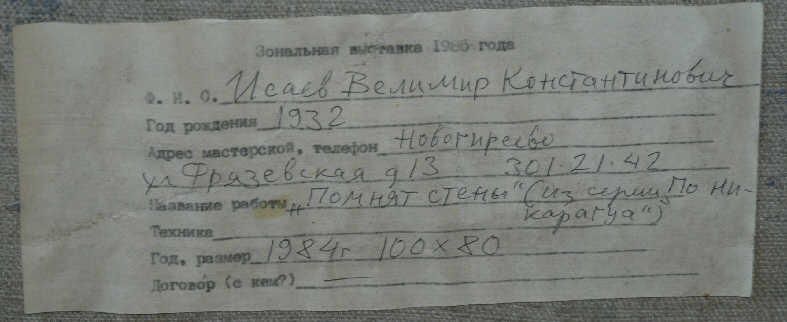 Зональная выставка 1986 года
Ф. И. О. Исаев Велимир Константинович
Год рождения 1932
Адрес мастерской, телефон Новогиреево
ул Фрязевская д 13 301·21·42
Название работы „Помнят стены" (из серии „По Ни-
карагуа")
Техника
Год, размер 1984г 100×80
Договор (с кем?) —